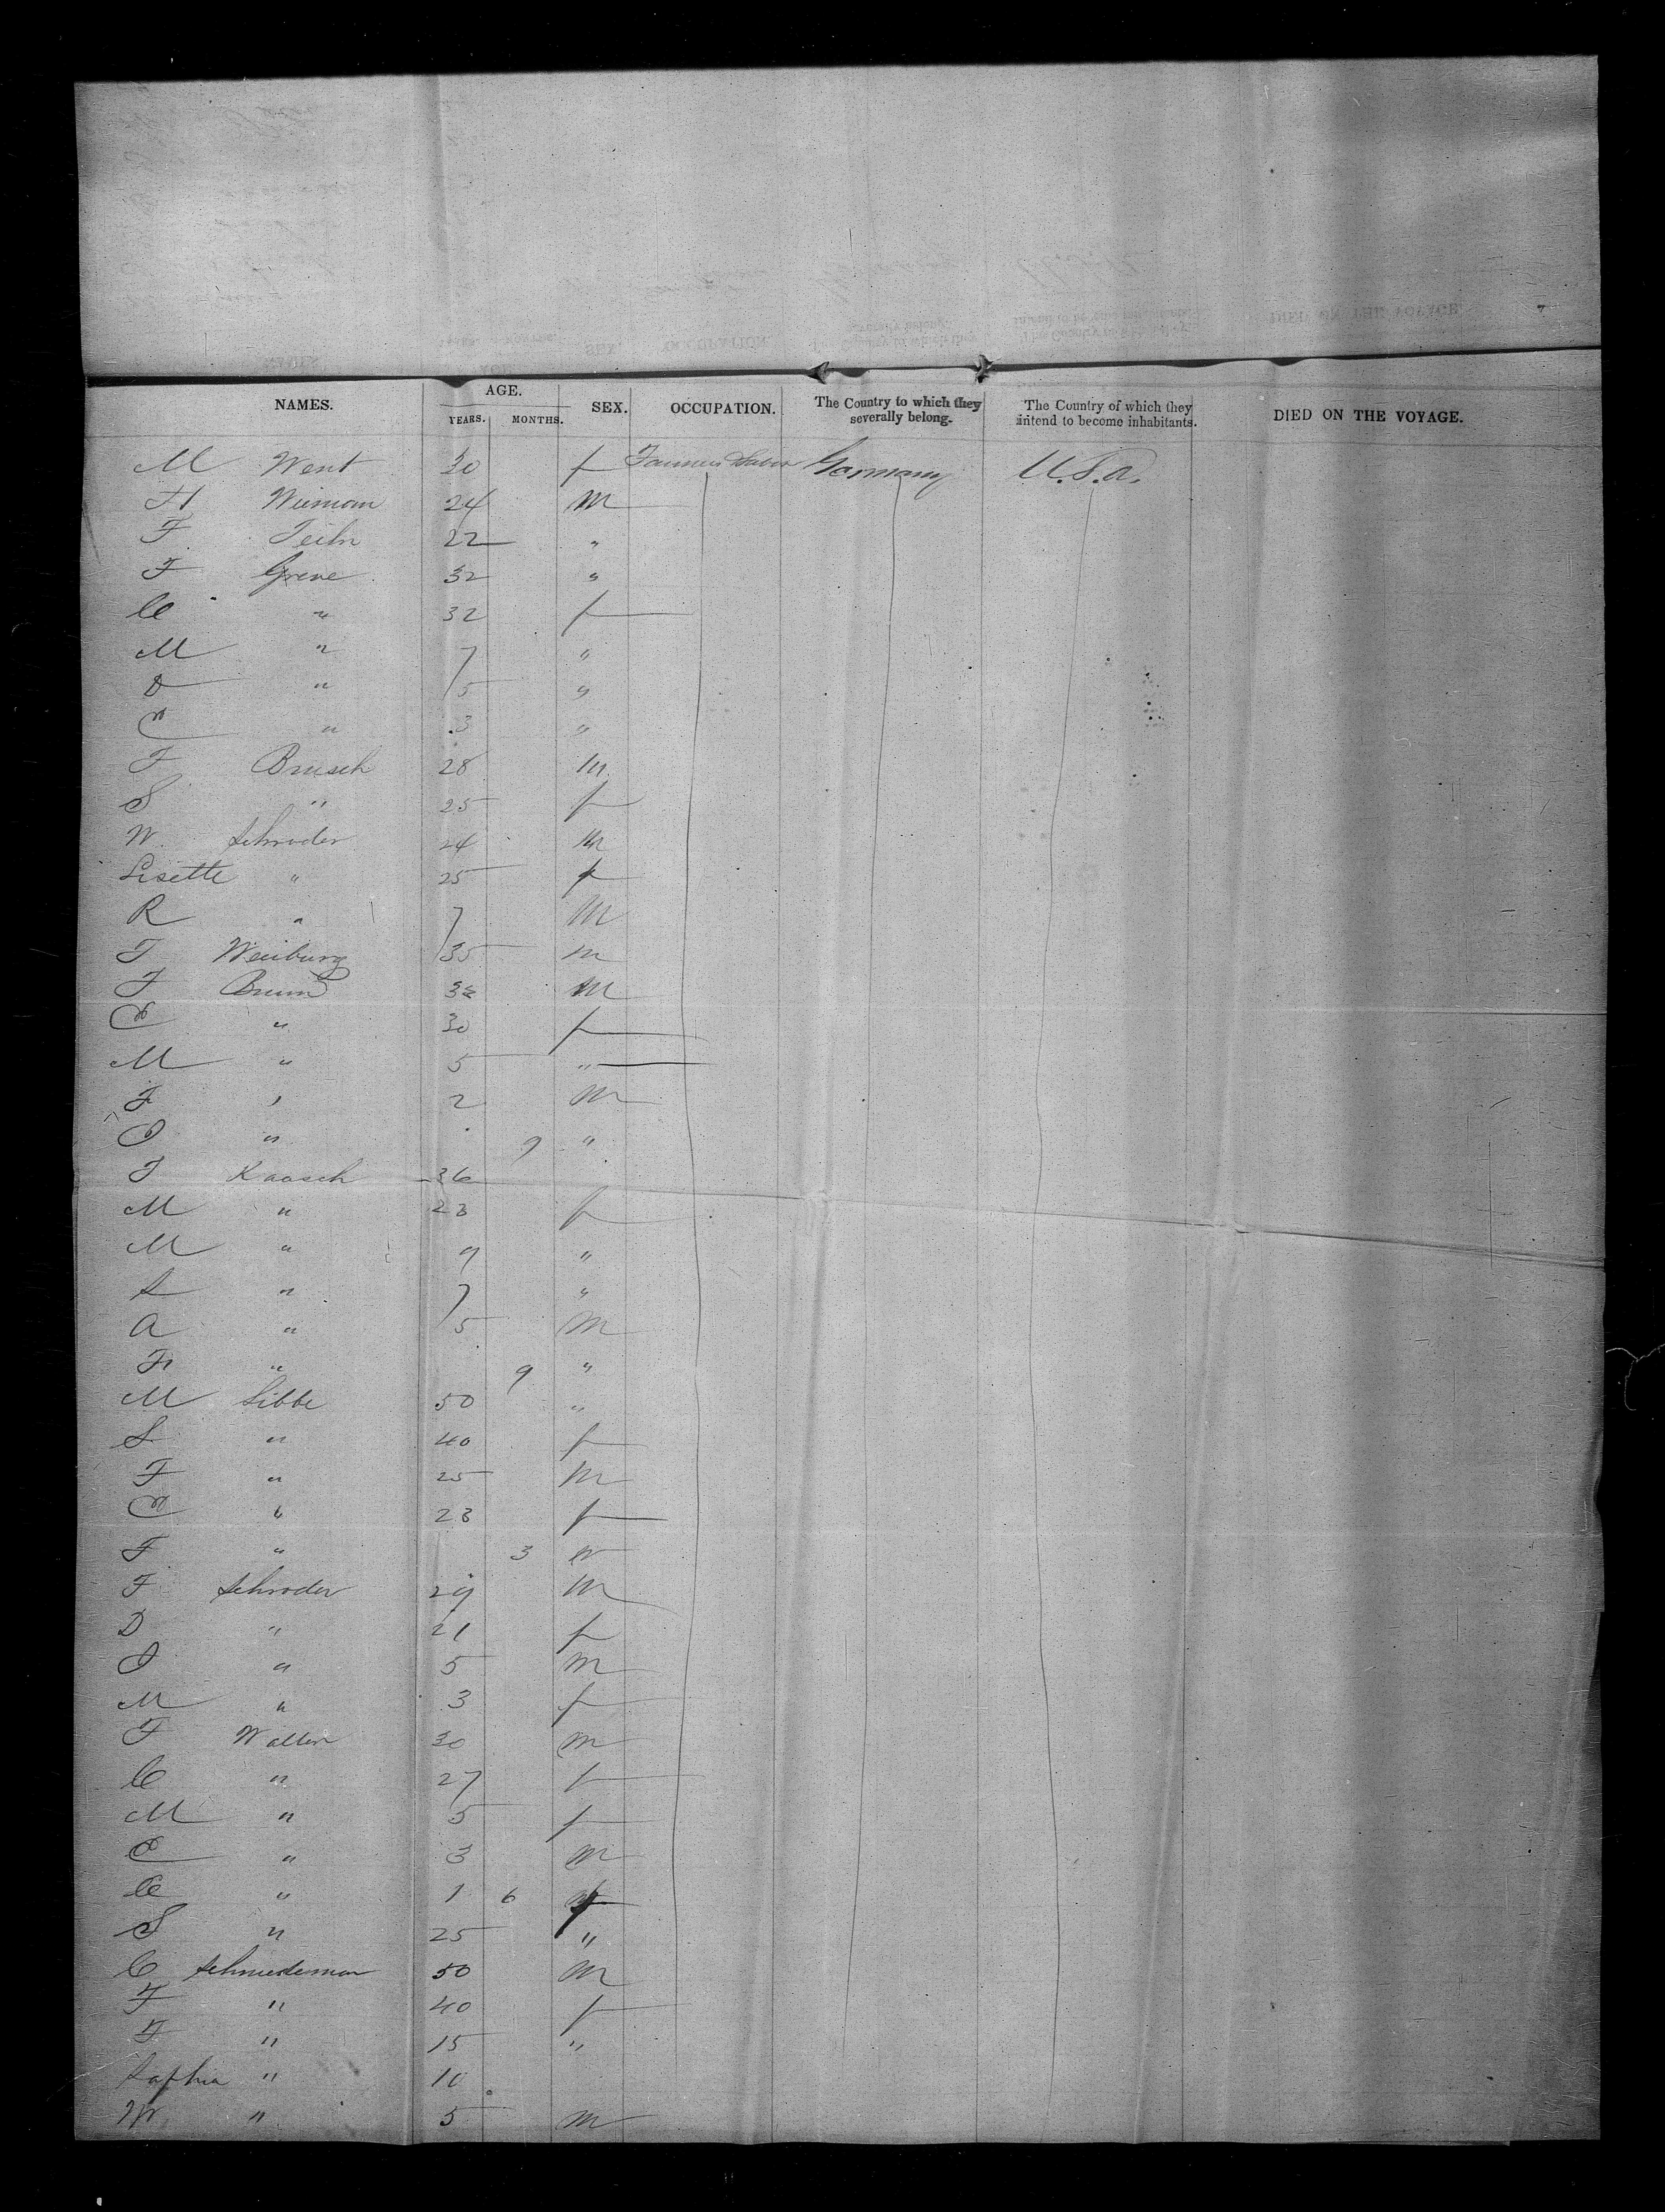 NAMES. AGE. YEARS. MONTHS. SEX. OCCUPATION. The Country to which they severally belong. The Country of which they intend to become inhabitants. DIED ON THE VOYAGE.
M Went 30 f Farmer Labor Germany U.S.A.
H Wieman 24 M
F 22 "
F Greve 32 "
C " 32 f
M " 7 "
D " 5 "
C " 3 "
F Brusch 28 M
S " 25 f
W. Schroder 24 M
Lisette " 25 f
R " 7 M
J Weiburg 35 m
F Brum 32 M
C " 30 f
M " 5 "
F " 2 M
J " 9 "
J Kaasch 36
M " 28 f
M " 9 "
S " 7 "
A " 5 M
Fr " 9 "
M Sibbe 50 "
S " 40 f
F " 25 M
C " 23 f
F " 3
F Schroder 29 M
D " 21 f
J " 5 M
M " 3 f
F Walter 30 m
C " 27 f
M " 5 f
C " 3 M
C " 1 6 f
S " 25 "
C Schmiedeman 50 M
F " 40 f
F " 15 "
Saphia " 10
W " 5 M